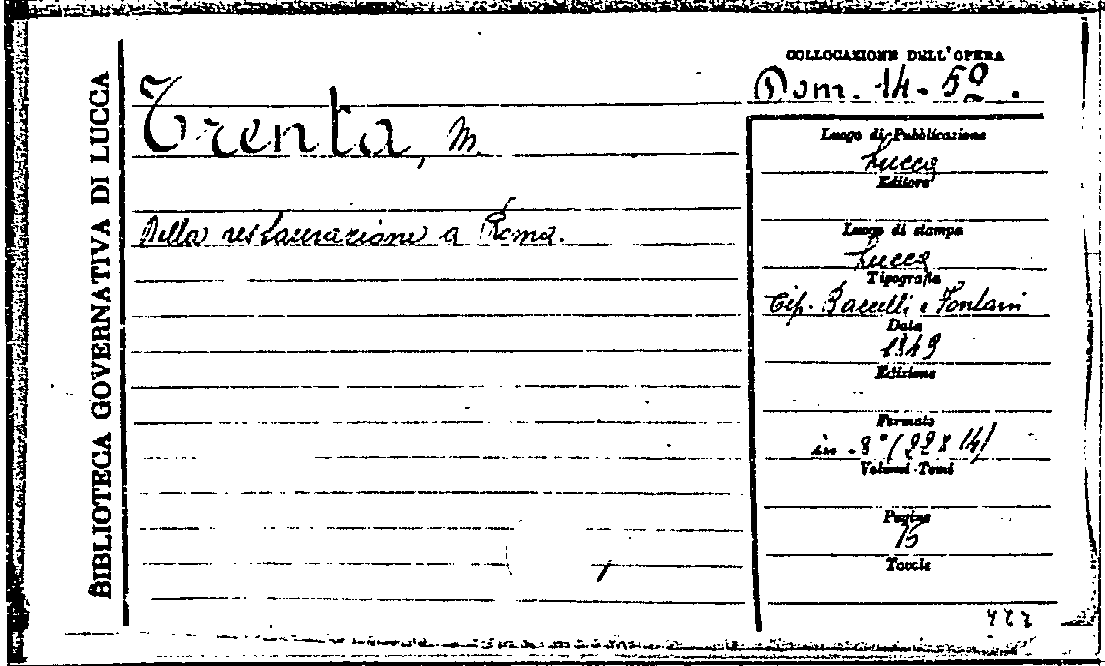 BIBLIOTECA GOVERNATIVA DI LUCCA
Trenta, M.
Della restaurazione a Roma.
COLLOCAZIONE DELL'OPERA
Dom. 14-59.
Luogo di Pubblicazione
Lucca
Editore
Luogo di stampa
Lucca
Tipografia
Tip. Baccelli e Fontani
Data
1849
Edizione
Formato
in-8° (22x14)
Volumi-Tomi
Pagine
15
Tavole